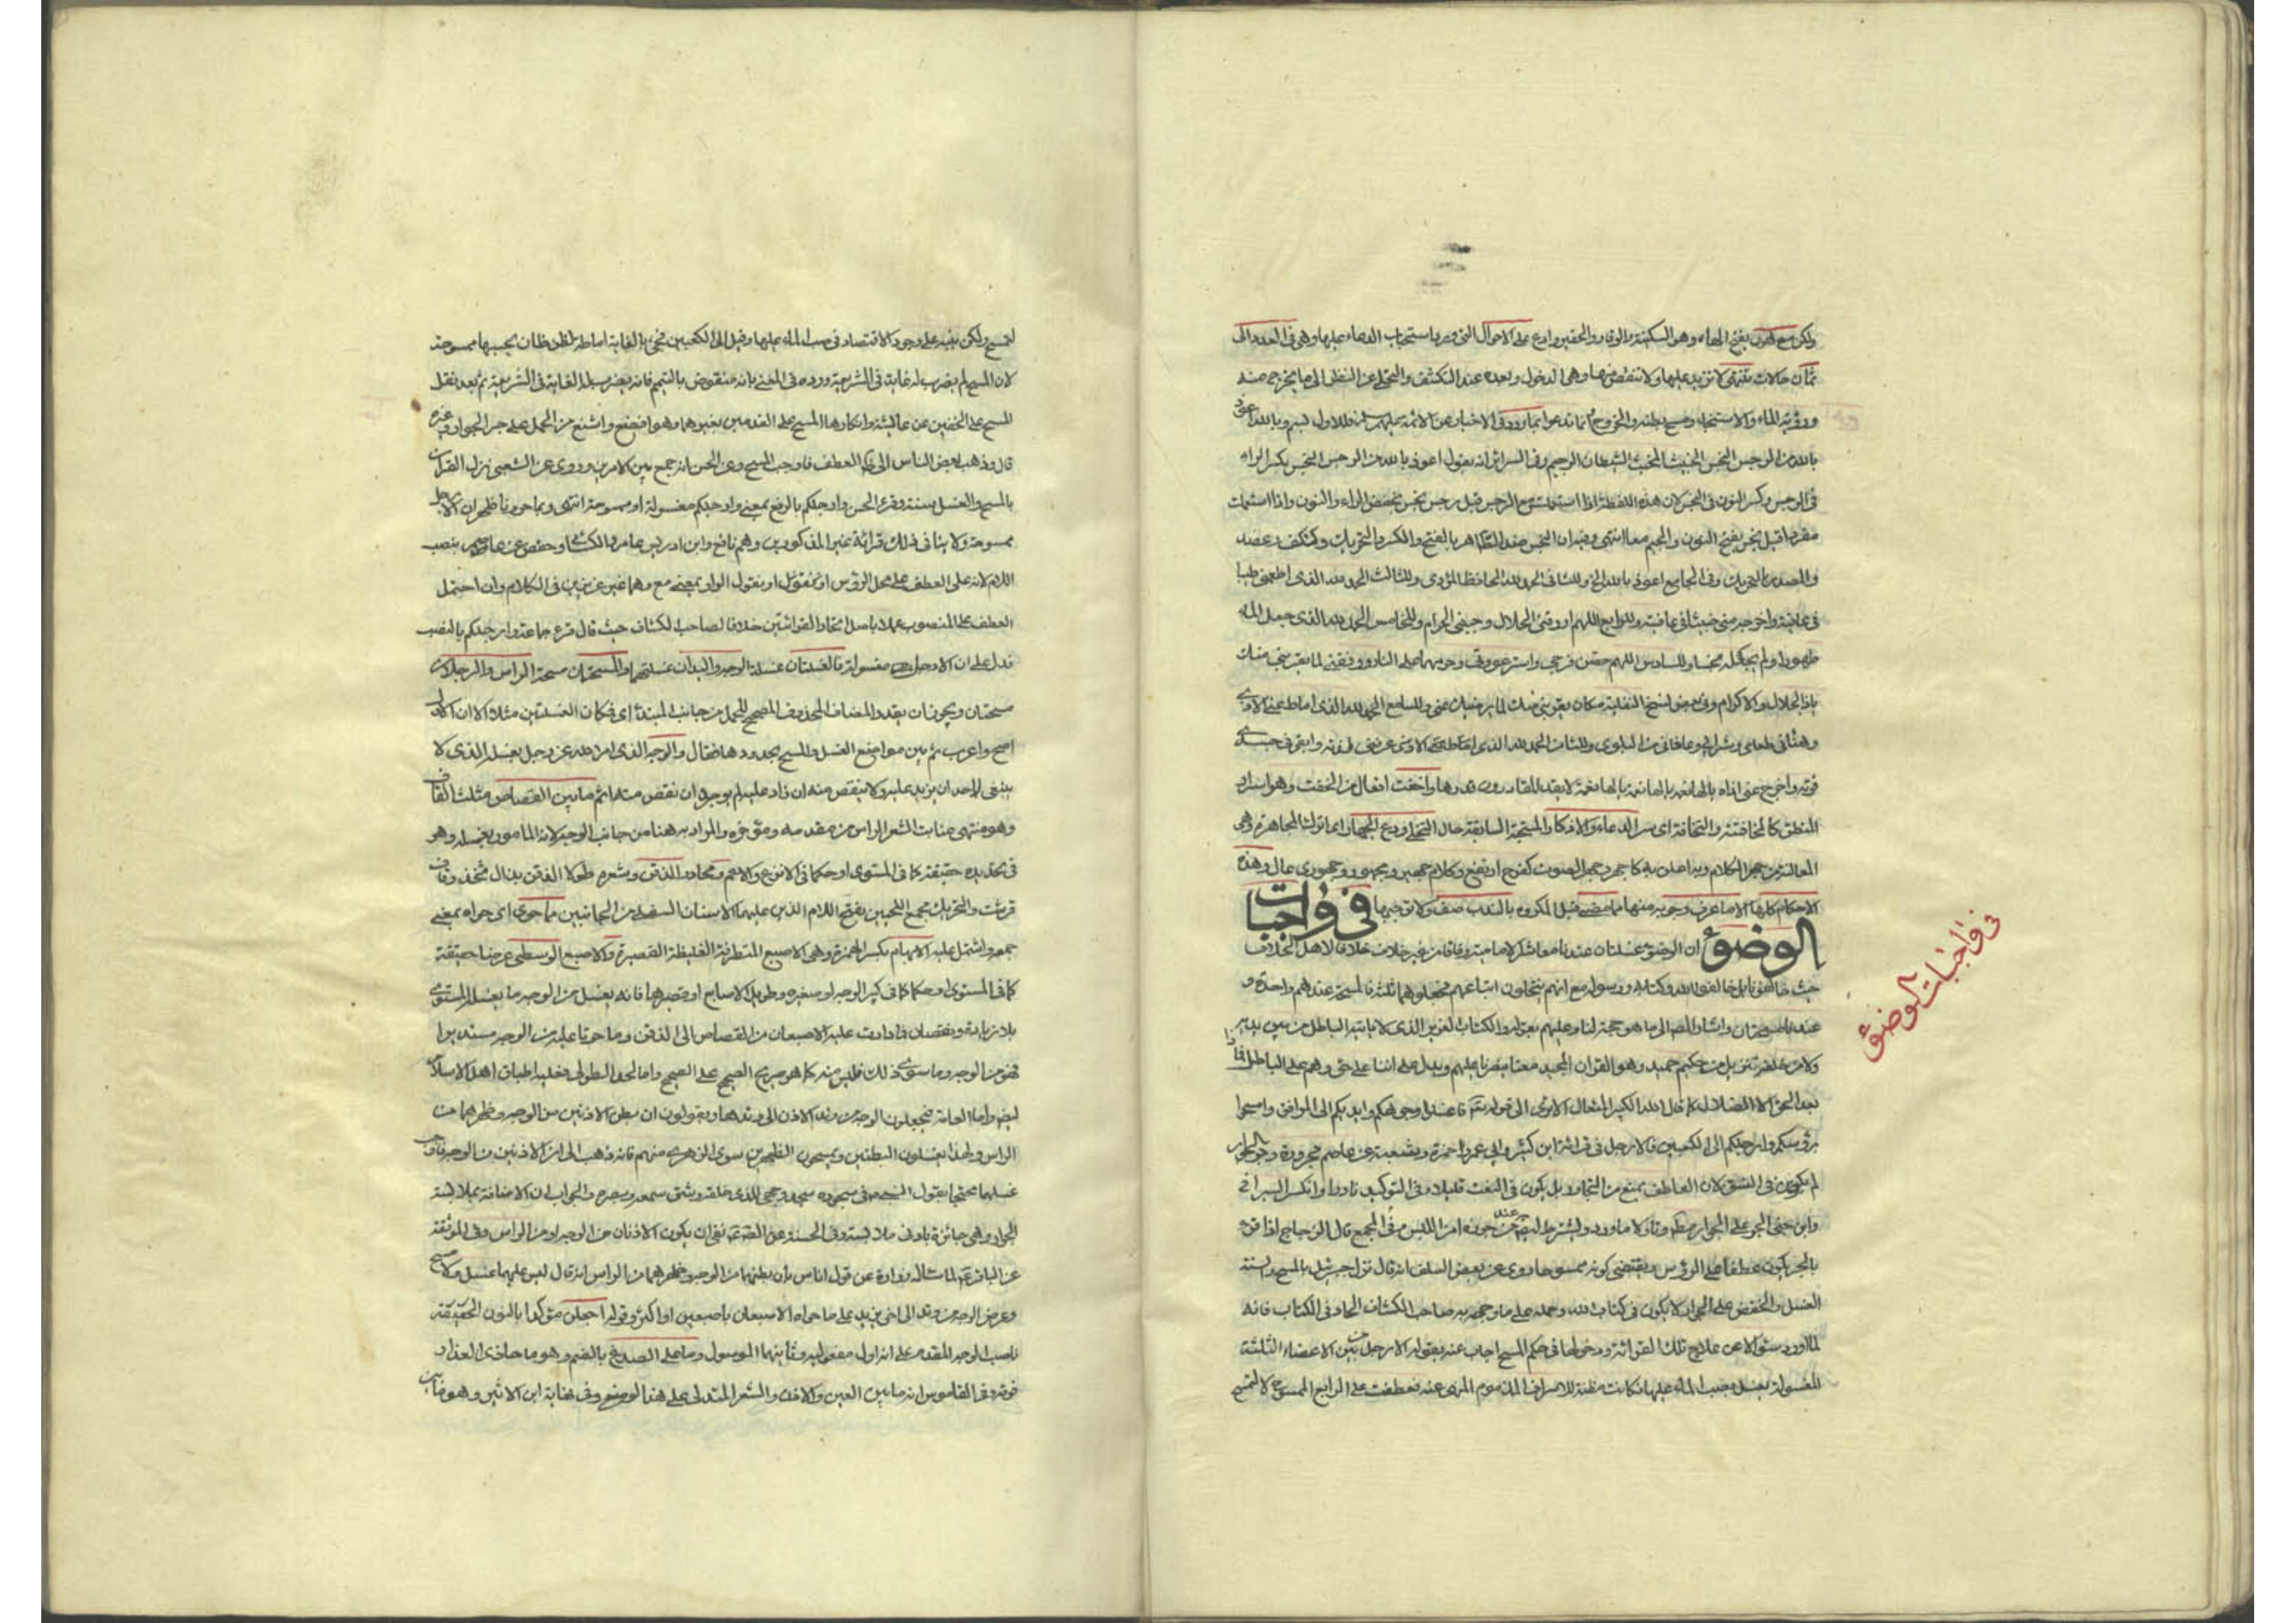 ولكن مع لهون بفتح الهاء وهو السكينة والوقار والحقير وادع على الاحوال التي ورد بها استحباب الدعاء عليها وهي في العدد الى
ثمان حالات تنتهي لا تزيد عليها ولا تنقص منها وهي الدخول وبعده عند التكشف والتخلي عن النظر الى ما يخرج منه
ورؤية الماء والاستنجاء ومسح بطنه والخروج بما ورد في الاخبار عن الائمة عليهم للاول بسم وبالله اعوذ
بالله من الرجس النجس الخبيث المخبث الشيطان الرجيم وفي السرائر انه يقول اعوذ بالله من الرجس النجس بكسر الراء
في الرجس وكسر النون في النجس لان هذه اللفظة اذا استعملت مع الرجس قيل رجس نجس بخفض الراء والنون واذا استعملت
مفردة قيل نجس بفتح النون والجيم معا انتهى وفيه ان النجس ضد الطاهر بالفتح والكسر والتحريك وككتف وعضد
والمصدر بالتحريك وفي الجامع اعوذ بالله الخ وللثاني الحمد لله الحافظ المؤدي وللثالث الحمد لله الذي اطعمني طيبا
في عافية واخرجه مني خبيثا في عافية وللرابع اللهم ارزقني الحلال وجنبني الحرام وللخامس الحمد لله الذي جعل الماء
طهورا ولم يجعله نجسا وللسادس اللهم حصن فرجي واستر عورتي وحرمهما على النار ووفقني لما يقربني منك
ياذا الجلال والاكرام وفي بعض نسخ النفلية مكان يقربني منك لما يرضيك عني وللسابع الحمد لله الذي اماط عني الاذى
وهنأني طعامي وشرابي وعافاني من البلوى وللثامن الحمد لله الذي اماط عني الاذى عرفني لذته وابقى في جسدي
قوته واخرج عني اذاه يالها نعمة يالها نعمة يالها نعمة لا يقدر القادرون قدرها واخفت افعال من الخفت وهو اسرار
النطق كالمخافتة والتخافت اي سر الدعاء والاذكار المستحبة السابقة حال التخلي ودع الجهار اي اترك المجاهرة وهي
المعالنة من جهر الكلام وبه اعلن به كاجهر وجهر الصوت كفرح ارتفع وكلام جهير ومجهور وجهوري عال وهذه
الاحكام كلها الا ما عرف وجوبه منها مما مضى قبل المكروه بالندب صف ولا توجبها في واجبات
الوضوء ان الوضوء غسلتان عندنا معاشر الامامية وفاقا من غير خلاف خلافا لاهل الخلاف
حيث خالفونا بل خالفوا الله وكتابه ورسوله مع انهم ينتحلون اتباعهم فجعلوهما ثلثة فالمسحة عندهم واحدة و
عندنا مسحتان واشار المص الى ما هو حجة لنا وعليهم بقوله والكتاب العزيز الذي لا يأتيه الباطل من بين يديه
ولا من خلفه تنزيل من حكيم حميد وهو القران المجيد معنا يصرنا عليهم ويدل على اننا على حق وهم على الباطل فماذا
بعد الحق الا الضلال كما قال الله الكبير المتعال الا ترى الى قوله تعالى فاغسلوا وجوهكم وايديكم الى المرافق وامسحوا
برؤسكم وارجلكم الى الكعبين فالارجل في قراءة ابن كثير وابي عمرو وحمزة وشعبة عن عاصم مجرورة وجر الجوار
لم يكن في النسق لان العاطف يمنع من التجاور بل يكون في النعت قليلا وفي التوكيد نادرا وانكر السيرافي
وابن جني الجر على الجوار مطلقا وتاولا ما ورد ويشترط ايضا عند من جوزه امن اللبس وفي المجمع قال الزجاج اذا قرء
بالجر يكون عطفا على الرؤس ويقتضي كونه ممسوحا روي عن بعض السلف انه قال نزل جبرئيل بالمسح والسنة
الغسل والخفض على الجوار لا يكون في كتاب الله وحمله على ما وجهه به صاحب الكشاف الحاد في الكتاب فانه
لما اورد سؤالا عن علاج تلك القراءة ودخولها في حكم المسح اجاب عنه بقوله الارجل من بين الاعضاء الثلثة
المغسولة تغسل بصب الماء عليها فكانت مظنة للاسراف المذموم المنهي عنه فعطفت على الرابع الممسوح لا لتمسح
في واجبات الوضوء
لتمسح ولكن لينبه على وجوب الاقتصاد في صب الماء عليها وقيل الى الكعبين فجيء بالغاية اماطة لظن ظان يحسبها ممسوحة
لان المسح لم يضرب له غاية في الشريعة ورده في المغني بانه منقوض بالتيمم فانه يضرب له الغاية في الشريعة ثم بعد نقل
المسح على الخفين عن عائشة وانكارها المسح على القدمين بغيرهما وهو افضح واشنع من الحمل على جر الجوار وغيره
قال وذهب بعض الناس الى العطف فاوجب المسح وعن الحسن انه جمع بين الامرين وروي عن الشعبي نزل القران
بالمسح والغسل سنة وقرء الحسن وارجلكم بالرفع بمعنى وارجلكم مغسولة او ممسوحة انتهى وبما حررنا ظهر ان الارجل
ممسوحة ولا ينافي ذلك قراءة غير المذكورين وهم نافع وابن ادريس عامر والكسائي وحفص عن عاصم بنصب
اللام لانه على العطف على محل الرؤس او نقول الواو بمعنى مع وهما غير عزيزين في الكلام وان احتمل
العطف على المنصوب عملا باصل اتحاد القرائتين خلافا لصاحب الكشاف حيث قال قرء جماعة وارجلكم بالنصب
فدل على ان الارجل مغسولة فالغسلتان غسلة الوجه واليدان غسلتهما والمسحتان مسحة الراس والرجلان
مسحتان ويجوز ان يقدر المضاف المحذوف المصحح للحمل من جانب المبتدأ اي فكان الغسلتين مثلا الا ان الاول
اصح واعرب ثم بين مواضع الغسل والمسح بحدودها فقال والوجه الذي امر الله عز وجل بغسله الذي لا
ينبغي لاحد ان يزيد عليه ولا ينقص منه ان زاد عليه لم يوجر وان نقص منه اثم ما بين القصاص مثلث القاف
وهو منتهى منابت الشعر الراس من مقدمه ومؤخره والمراد به هنا من جانب الوجه لانه المامور بغسله وهو
في تحديده حقيقة كما في المستوي او حكما في الانزع والاغم ومحادر الذقن وشعره طولا الذقن بذال فخذ وقاف
قرشت والتحريك مجمع اللحيين بفتح اللام الذين عليهما الاسنان السفلى من الجانبين ما حوى اي حواه بمعنى
جمع واشتمل عليه الابهام بكسر الهمزة وهي الاصبع المتطرفة الغليظة القصيرة والاصبع الوسطى عرضا حقيقة
كما في المستوي او حكما كما في كبير الوجه او صغيره وطويل الاصابع او قصيرها فانه يغسل من الوجه ما يغسل المستوي
بلا زيادة ونقصان فما دارت عليه الاصبعان من القصاص الى الذقن وما حوتا عليه من الوجه مستديرا
فهو من الوجه وما سوى ذلك فليس منه كما هو صريح الصحيح على الصحيح واما الحد الطولي فعليه اطباق اهل الاسلام
ايضا واما العامة فيجعلون الوجه من وتد الاذن الى وتدها ويقولون ان بطن الاذنين من الوجه وظهرهما من
الراس ولهذا يغسلون البطنين ويمسحون الظهرين سوى الزهري منهم فانه ذهب الى ان الاذنين من الوجه فاوجب
غسلهما محتجا بقول النبي في سجوده سجد وجهي للذي خلقه وشق سمعه وبصره والجواب ان الاضافة بملابسة
الجوار وهي جائزة بادنى ملابسة وفي الحسنة عن الصادق نفي ان يكون الاذنان من الوجه او من الراس وفي الموثقة
عن الباقر لما ساله زرارة عن قول اناس بأن بطنهما من الوجه وظهرهما من الراس انه قال ليس عليهما غسل ولا مسح
وعرض الوجه من وتد الى اخر يزيد على ما حواه الاصبعان باصبعين او اكثر وقوله اجعلن مؤكدا بالنون الخفيفة
ناصب الوجه المقدم على انه اول مفعوليه وثانيهما الموصول وما على الصدغ بالضم وهو ما حاذى العذار
فوقه وفي القاموس انه ما بين العين والاذن والشعر المتدلي على هذا الموضع وفي نهاية ابن الاثير وهو ما بين